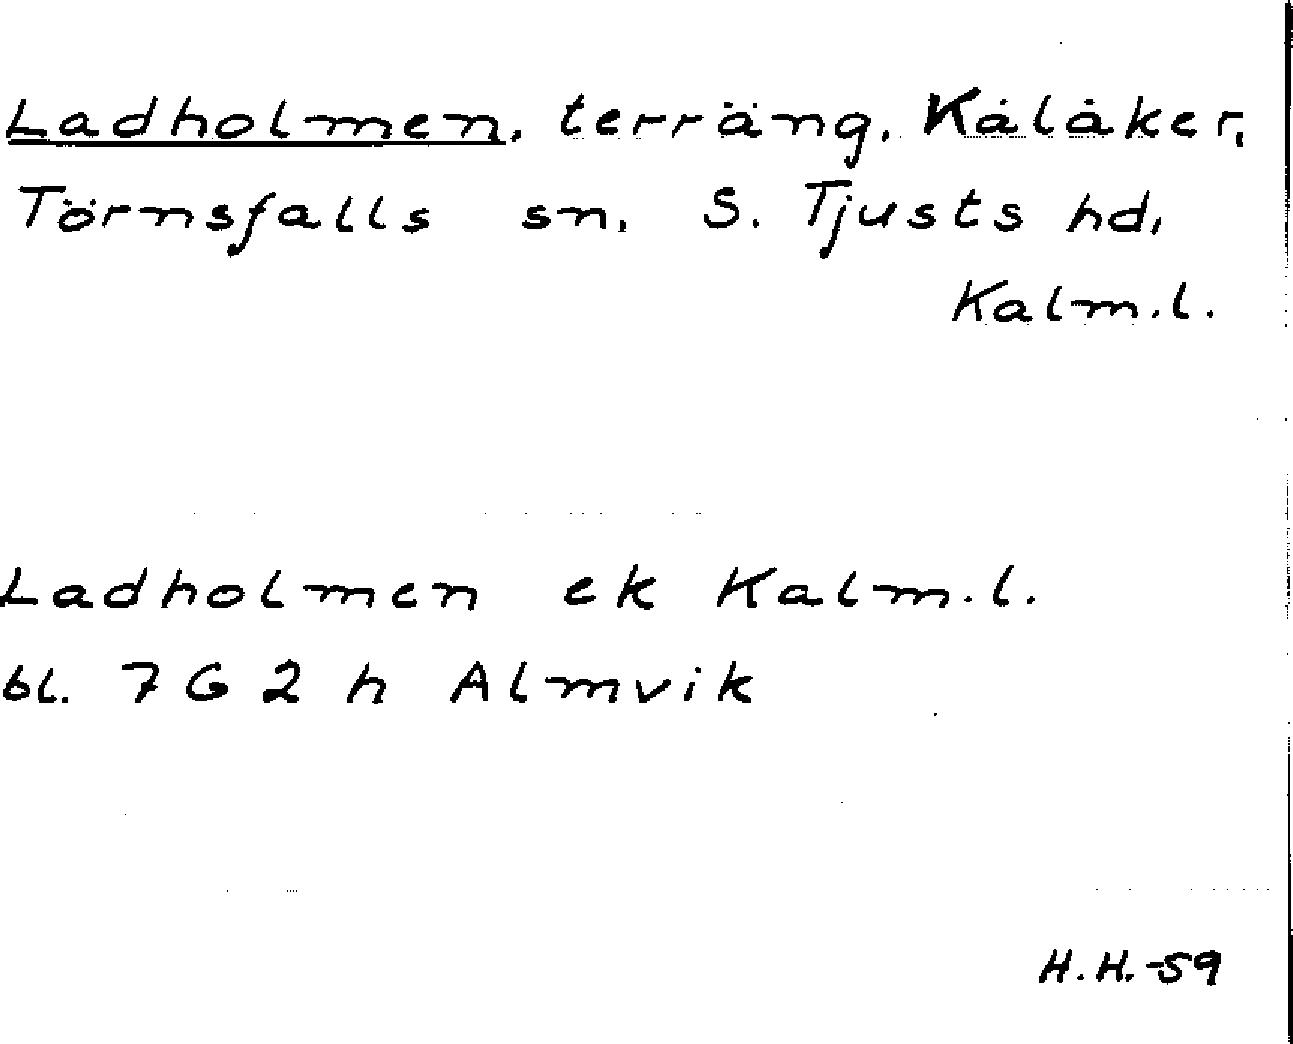 Ladholmen, terräng, Kålåker,
Törnsfalls sn, S. Tjusts hd,
Kalm.l.
Ladholmen ek Kalm.l.
bl. 7 G 2 h Almvik
H.H.-59